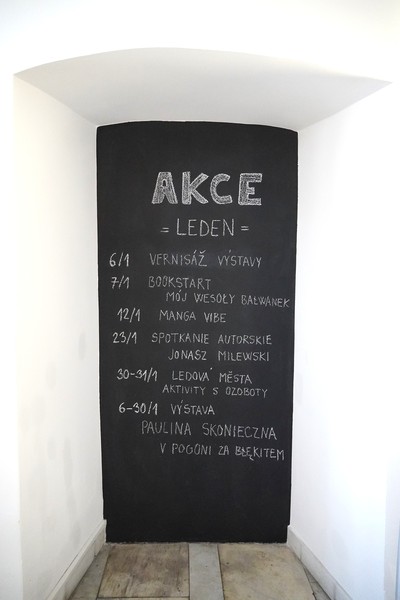 AKCE
= LEDEN =
6/1 VERNISÁŽ VÝSTAVY
7/1 BOOKSTART
MÓJ WESOŁY BAŁWANEK
12/1 MANGA VIBE
23/1 SPOTKANIE AUTORSKIE
JONASZ MILEWSKI
30-31/1 LEDOVÁ MĚSTA
AKTIVITY S OZOBOTY
6-30/1 VÝSTAVA
PAULINA SKONIECZNA
V POGONI ZA BŁĘKITEM